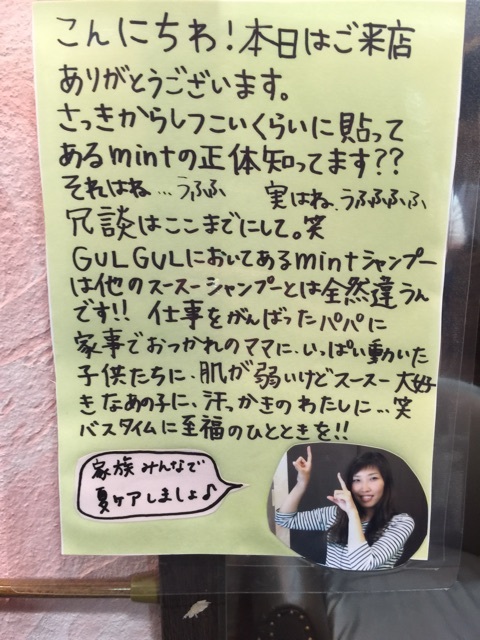 こんにちわ!本日はご来店
ありがとうございます。
さっきからしつこいくらいに貼って
あるmintの正体知ってます??
それはね…うふふ 実はね、うふふふふ
冗談はここまでにして。笑
GULGULにおいてあるmintシャンプー
は他のスースーシャンプーとは全然違うん
です!! 仕事をがんばったパパに
家事でおつかれのママに、いっぱい動いた
子供たちに、肌が弱いけどスースー大好
きなあの子に、汗っかきのわたしに..笑
バスタイムに至福のひとときを!!
家族みんなで
夏ケアしましょ♪